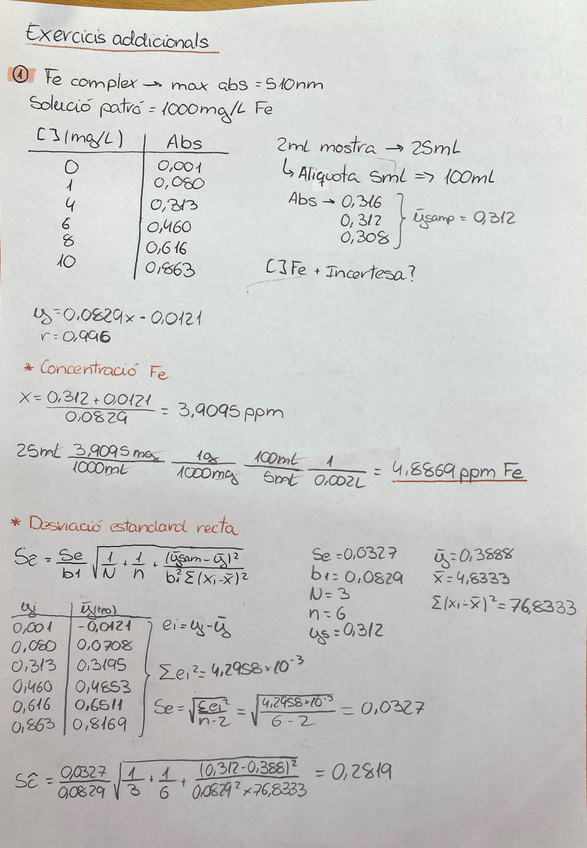 Exercicis addicionals
① Fe complex → max abs = 510nm
Solució patró = 1000mg/L Fe
[ ] (mg/L) | Abs
0 | 0,001
1 | 0,080
4 | 0,313
6 | 0,460
8 | 0,616
10 | 0,863
2mL mostra → 25mL
↳ Alíquota 5mL => 100mL
Abs → 0,316
0,312
0,308
ȳsamp = 0,312
[ ] Fe + Incertesa?
y = 0,0829x - 0,0121
r = 0,996
* Concentració Fe
x = (0,312 + 0,0121) / 0,0829 = 3,9095 ppm
25mL · 3,9095 mg / 1000mL · 1g / 1000mg · 100mL / 5mL · 1 / 0,002L = 4,8869 ppm Fe
* Desviació estandard recta
Sĉ = Se / b1 √(1/N + 1/n + (ȳsam - ȳ)² / b1² Σ(xi - x̄)²)
Se = 0,0327
b1 = 0,0829
N = 3
n = 6
ys = 0,312
ȳ = 0,3888
x̄ = 4,8333
Σ(xi - x̄)² = 76,8333
yi | ȳ(teo)
0,001 | -0,0121
0,080 | 0,0708
0,313 | 0,3195
0,460 | 0,4853
0,616 | 0,6511
0,863 | 0,8169
ei = y - ȳ
Σei² = 4,2958 × 10⁻³
Se = √(Σei² / n-2) = √(4,2958×10⁻³ / 6-2) = 0,0327
Sĉ = 0,0327 / 0,0829 √(1/3 + 1/6 + (0,312 - 0,388)² / 0,0829² × 76,8333) = 0,2819